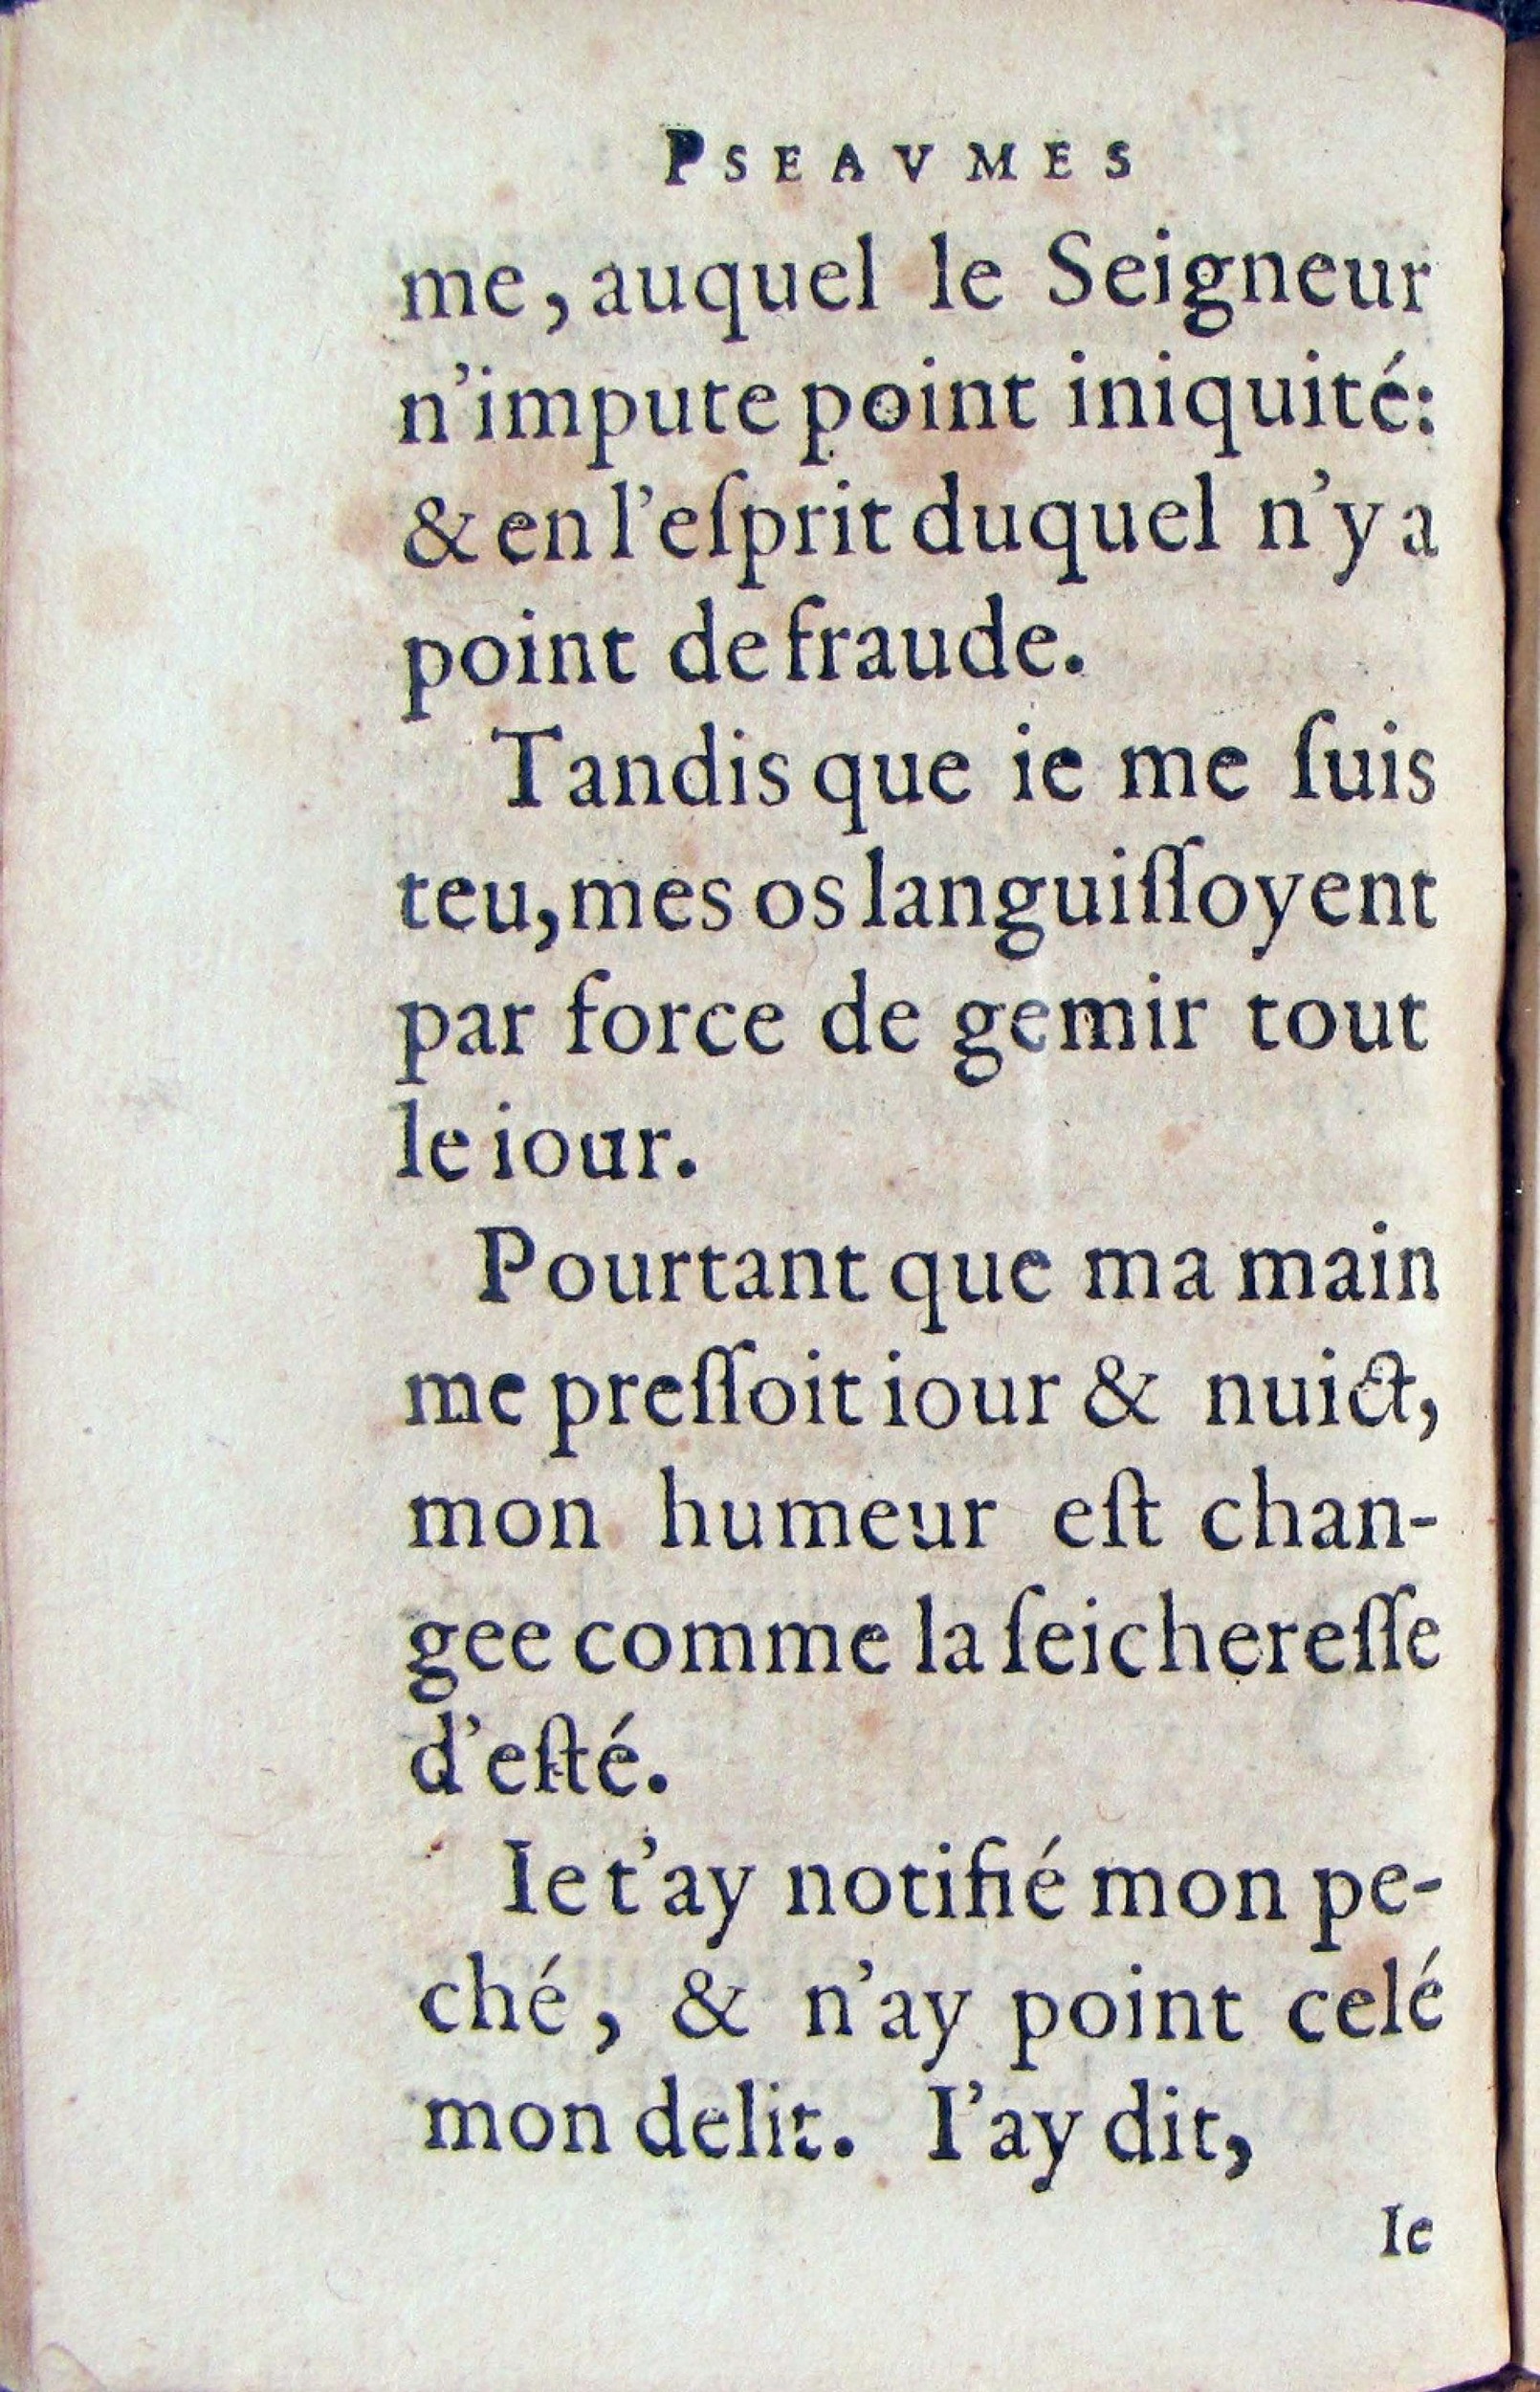 PSEAVMES
me, auquel le Seigneur
n'impute point iniquité:
& en l'eſprit duquel n'y a
point de fraude.
Tandis que ie me ſuis
teu, mes os languiſſoyent
par force de gemir tout
le iour.
Pourtant que ma main
me preſſoit iour & nuict,
mon humeur eſt chan-
gee comme la ſeichereſſe
d'eſté.
Ie t'ay notifié mon pe-
ché, & n'ay point celé
mon delit. I'ay dit,
Ie